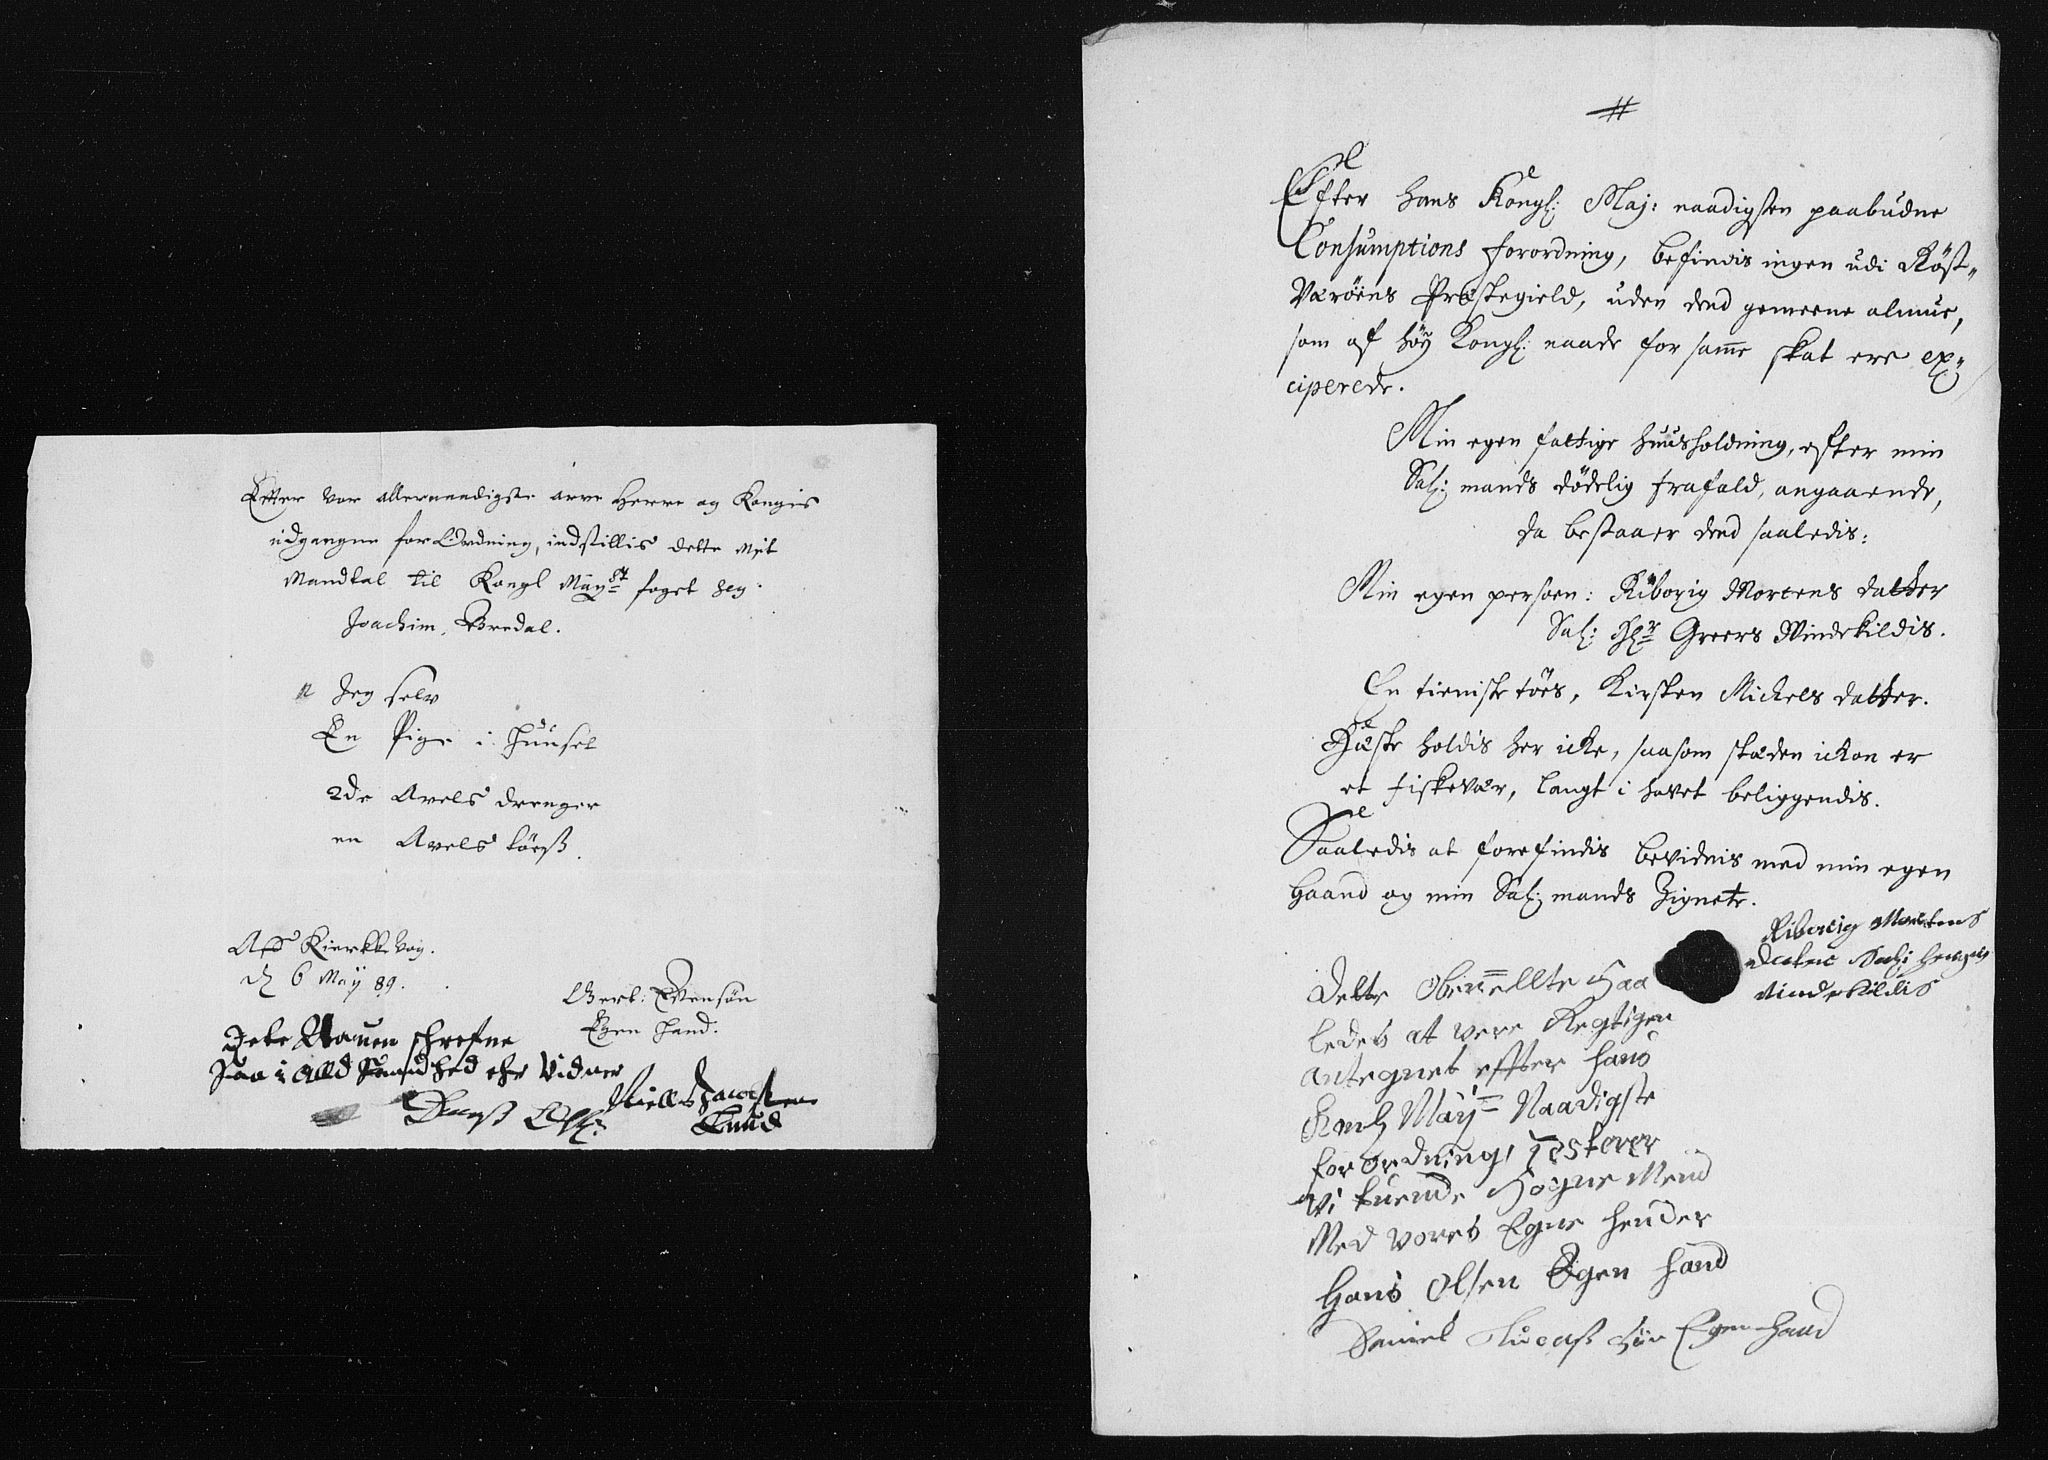 Efter vor allernaadigste arve Herre og Kongis
udgangne forOrdning, indstillis dette mit
Mandtal til Kongl Mayst foget Seg.
Joachim, Bredal.
Jeg selv
En Pige i Huuset
2de Avels drenger
en Avels töeß.
Aff Kierkke Vog.
d 6 Maÿ 89.
Gert: Evensön
Egen Hand.
Dete Schrefne
Saa i alld Sandhed ehr Vidner
Niells Jacobsen
Lund
Efter hans Kongl: Maj: naadigsten paabudne
Consumptions forordning, befindis ingen udi Röst-
Væröens Præstegield, uden dend gemeene almue,
som af höy Kongl: naade for samme skat ere ex-
ciperede.
Min egen fattige huusholdning, efter min
Sal: mands dödelig frafald, angaaende,
da bestaaer dend saaledis:
Min egen persoen: Riborig Mortens datter
Sal: Hr Greers Windekildis.
En tieniste töes, Kirsten Mickels datter.
Hæste holdis her icke, saasom stæden ickon er
et fiskevær, langt i havet beliggendis.
Saaledis at forefindis bevidnis med min egen
Haand og min Sal: mands Zignete.
Riborig Mortens
datter Sal:
Vindekildis
Dette Obermellte Saa
ledes at vere Regtigen
antegnet effter hans
Kongl Maÿ Naadigste
forordning, Testerer
Wi tuende Sogne Mend
Med vores Egne hender
Hans Olsen Egen Hand
Daniel Lucaß Sön Egen Haand